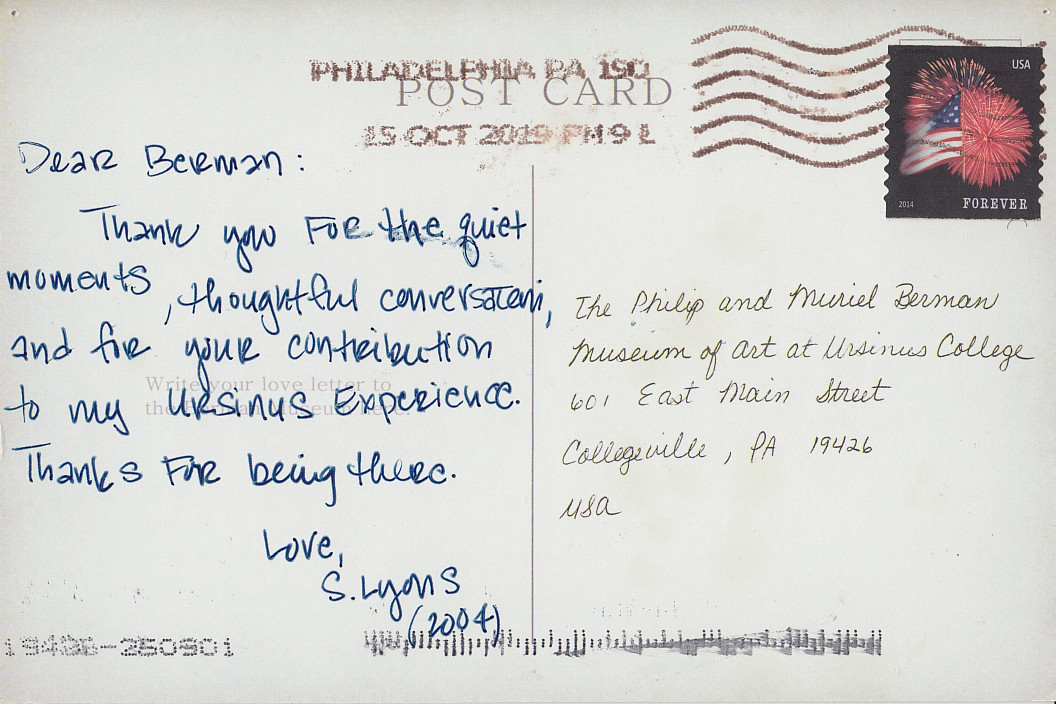 PHILADELPHIA PA 190
POST CARD
15 OCT 2019 PM 9 L
USA
2014 FOREVER
Dear Berman:
Thank you For the quiet
moments, thoughtful conversations,
and for your contribution
to my Ursinus Experience.
Thanks For being there.
Love,
S. Lyons
(2004)
Write your love letter to
the Berman Museum here.
The Philip and Muriel Berman
Museum of Art at Ursinus College
601 East Main Street
Collegeville, PA 19426
USA
19426-250901